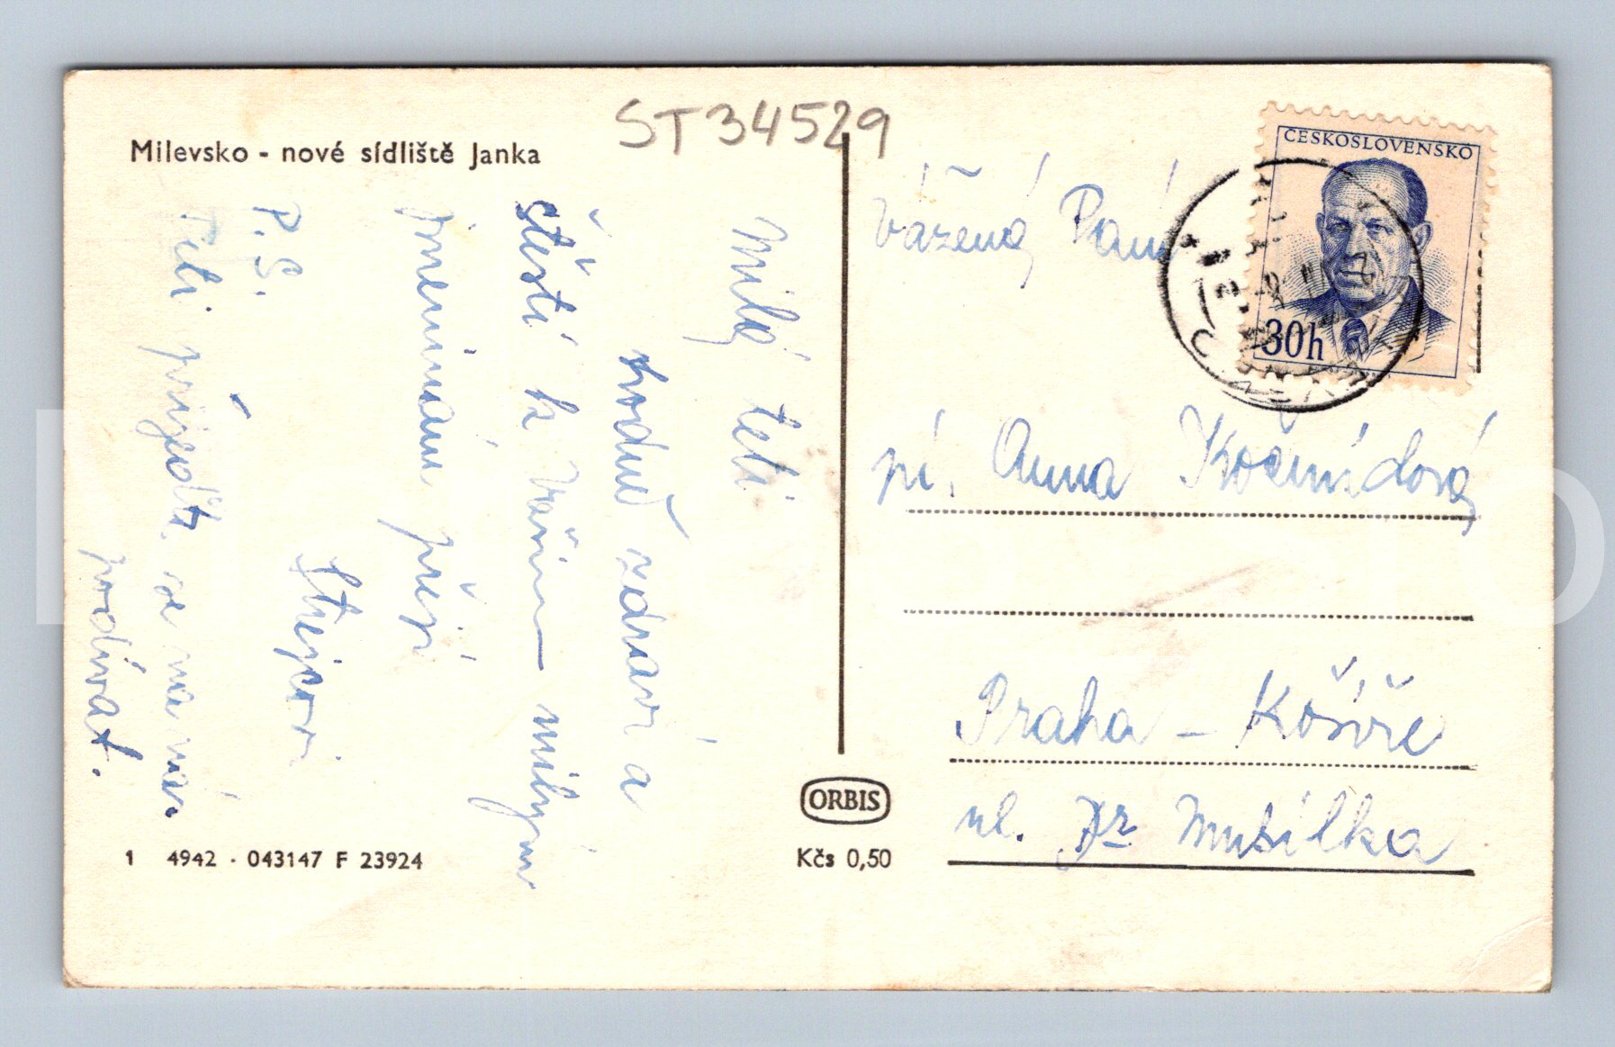 ST34529
Milevsko - nové sídliště Janka
Milá teti
hodně zdraví a
štěstí k Vašim milým
jmeninám přejí
Strejcovi
P.S.
Teti přijeďte se na nás
podívat.
1 4942 · 043147 F 23924
ORBIS
Kčs 0,50
ČESKOSLOVENSKO
30h
Vážená Paní
pí. Anna
Praha - Košíře
ul. Dr Musílka